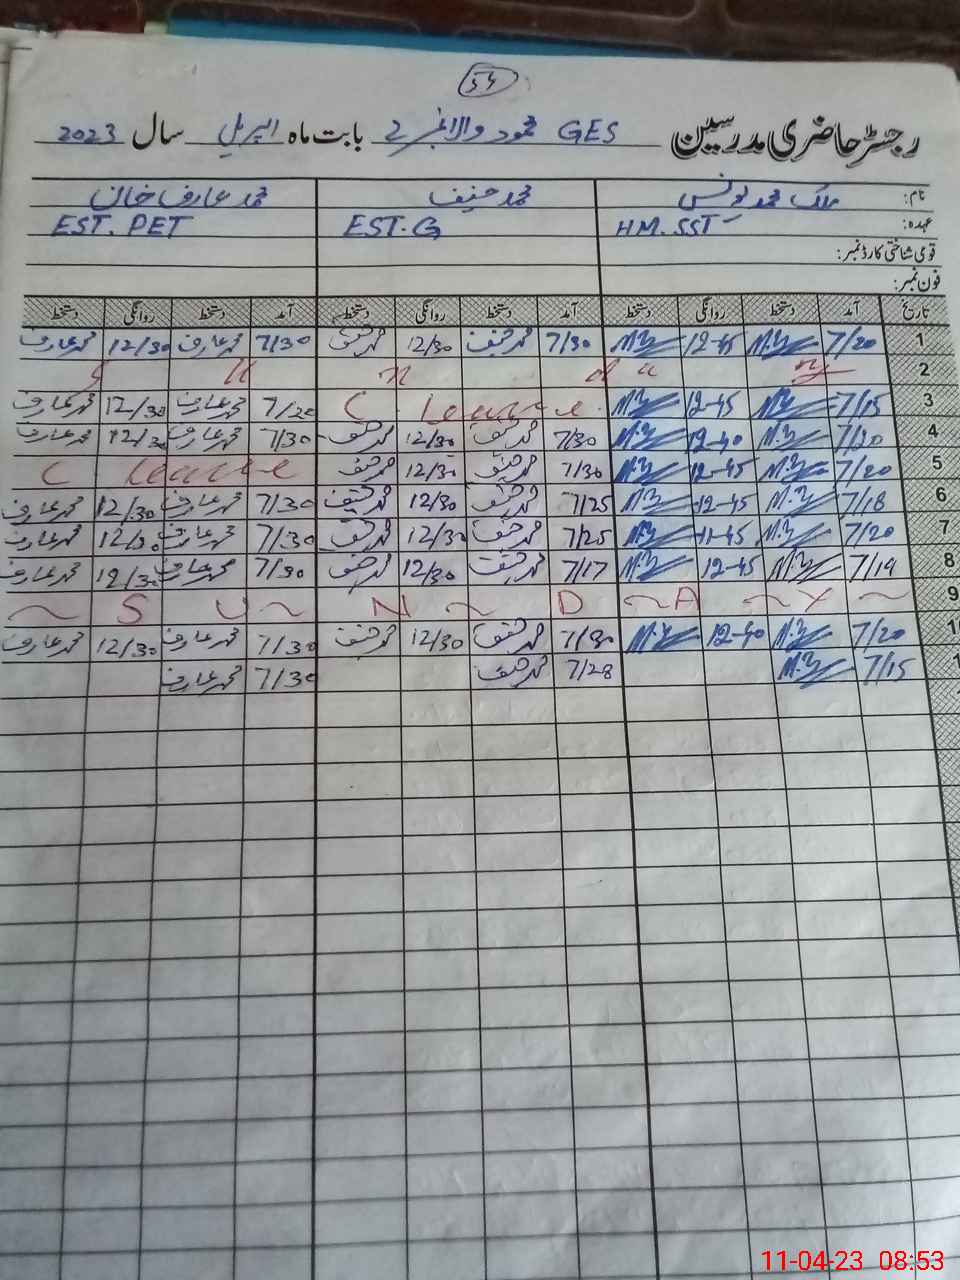 54
رجسٹر حاضری مدرسین GES محمود والا نمبر 2 بابت ماہ اپریل سال 2023
نام: ملک محمد یونس محمد حنیف محمد عارف خان
عہدہ: HM. SST EST-G EST. PET
قومی شناختی کارڈ نمبر:
فون نمبر:
تاریخ آمد دستخط روانگی دستخط آمد دستخط روانگی دستخط آمد دستخط روانگی دستخط
1 7/20 12-45 7/30 محمد حنیف 12/30 محمد حنیف 7/30 محمد عارف 12/30 محمد عارف
2 S u n d a y
3 7/15 12-45 C leave 7/20 محمد عارف 12/30 محمد عارف
4 12-40 7/30 محمد حنیف 12/30 محمد حنیف 7/30 محمد عارف 12/30 محمد عارف
5 7/20 12-45 7/30 محمد حنیف 12/30 محمد حنیف C leave
6 7/18 12-45 7/25 محمد حنیف 12/30 محمد حنیف 7/30 محمد عارف 12/30 محمد عارف
7 7/20 11-45 7/25 محمد حنیف 12/30 محمد حنیف 7/30 محمد عارف 12/30 محمد عارف
8 7/19 12-45 7/17 محمد حنیف 12/30 محمد حنیف 7/30 محمد عارف 12/30 محمد عارف
9 ~ S U ~ N ~ D ~ A ~ Y ~
10 7/20 12-40 7/30 محمد حنیف 12/30 محمد حنیف 7/30 محمد عارف 12/30 محمد عارف
7/15 7/28 محمد حنیف 7/30 محمد عارف
11-04-23 08:53